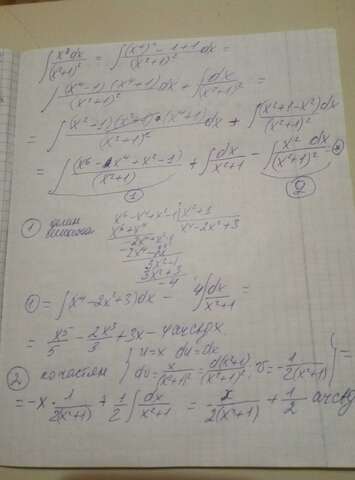 ∫ x⁸dx/(x²+1)² = ∫ (x⁴)²-1+1/(x²+1)² dx =
∫ (x⁴-1)(x⁴+1)/(x²+1)² dx + ∫ dx/(x²+1)² =
= ∫ (x²-1)(x²+1)·(x⁴+1)/(x²+1)² dx + ∫ (x²+1-x²)dx/(x²+1)²
= ∫ (x⁶-x⁴+x²-1)/(x²+1) + ∫ dx/x²+1 - ∫ x² dx/(x²+1)²
① ②
① делим x⁶-x⁴+x²-1 | x²+1
x⁶+x⁴ x⁴-2x²+3
-2x⁴+x²-1
-2x⁴-2x²
3x²-1
3x²+3
-4
① = ∫(x⁴-2x²+3)dx - 4∫ dx/x²+1 =
= x⁵/5 - 2x³/3 + 3x - 4arctgx.
② по частям { u=x du=dx
dv= x/(x²+1)² = d(x²+1)/(x²+1)², v=-1/2(x²+1) } =
= -x·1/2(x²+1) + 1/2 ∫ dx/x²+1 = x/2(x²+1) + 1/2 arctg